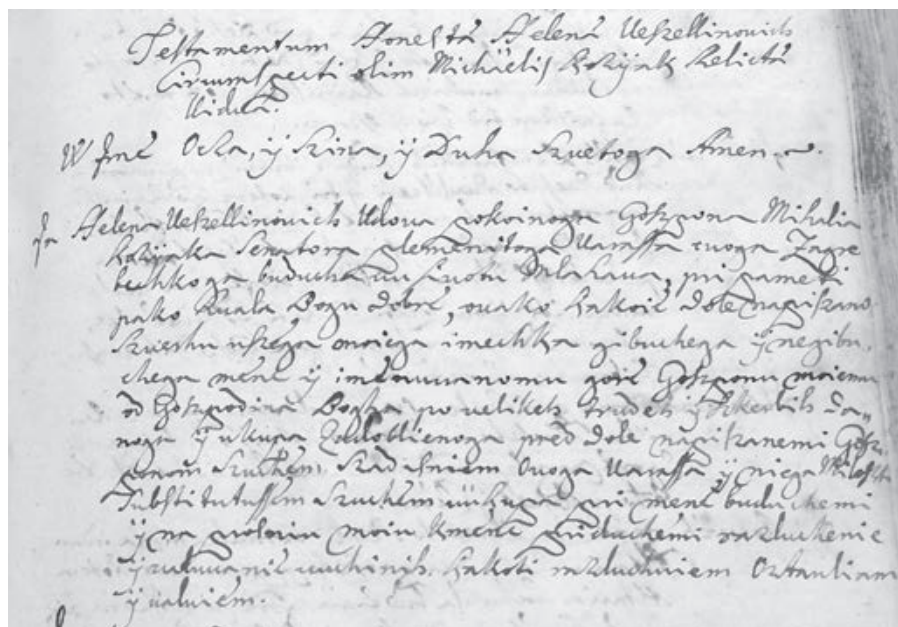 Testamentum Honestæ Helenæ Ueszellinovich
Circumspecti olim Michäelis Kozÿak Relictæ
Uiduæ.
W Jmé Ocza, ÿ Szina, ÿ Duha Szuétoga Amen.
Ja Helena Ueszellinovich Udoua pokoinoga Goszpona Mihalia
Kozÿaka Senatora plemenitoga Uarassa ouoga Zagre
bechkoga buducha uu siuotu Mlahaua, pri pameti
pako huala Bogu dobré, ovako kakoié dole napiszano
Szuerhu uszega moiega imechka gibuchega ÿ negibu„
chega mené ÿ iménuuanomu goré Goszponu moiemu
od Goszpodina Bogha po velikeh trudeh ÿ da„
noga ÿ ukupa zadobllenoga pred dole napiszanemi Gosz„
ponom Szuchem ouoga Uarassa ÿ niega
Substitutussem Szuchém pri mené buduchemi
ÿ na moiu k mené razluchenie
ÿ uchinih, kakoti razluchuiem Osztauliam
ÿ